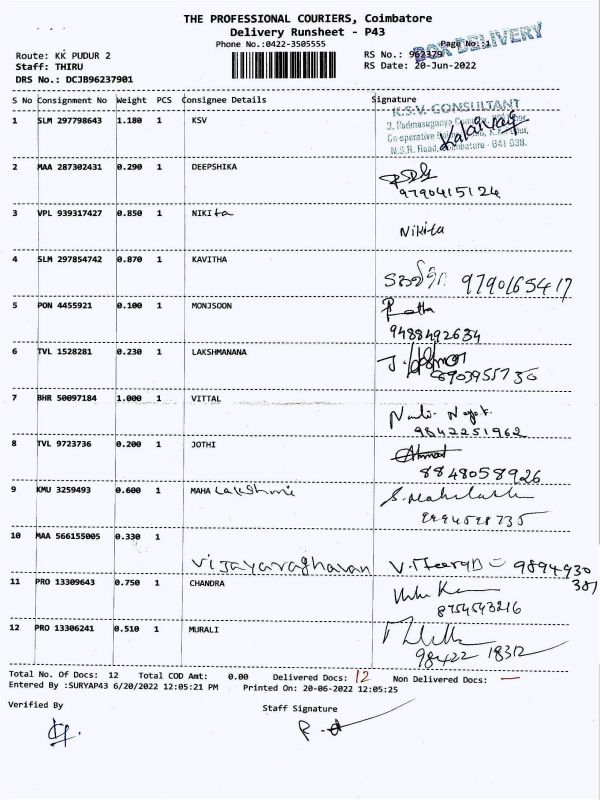 THE PROFESSIONAL COURIERS, Coimbatore
Delivery Runsheet - P43
Phone No.:0422-3505555
Page No.:1
BOX DELIVERY
Route: KK PUDUR 2
RS No.: 962379
Staff: THIRU
RS Date: 20-Jun-2022
DRS No.: DCJB96237901
S No Consignment No Weight PCS Consignee Details Signature
K.S.V. CONSULTANT
1 SLM 297798643 1.180 1 KSV
N.S.R. Road, Coimbatore - 641 038.
2 MAA 287302431 0.290 1 DEEPSHIKA
9790415124
3 VPL 939317427 0.850 1 NIKita
Nikita
4 SLM 297854742 0.870 1 KAVITHA
9790165417
5 PON 4455921 0.100 1 MONJSOON
9488492634
6 TVL 1528281 0.230 1 LAKSHMANANA
8903955730
7 BHR 50097184 1.000 1 VITTAL
9842251962
8 TVL 9723736 0.200 1 JOTHI
8848058926
9 KMU 3259493 0.600 1 MAHA Lakshmi
10 MAA 566155005 0.330 1
Vijayaraghavan 9894930
387
11 PRO 13309643 0.750 1 CHANDRA
8754543216
12 PRO 13306241 0.510 1 MURALI
98422 18312
Total No. Of Docs: 12 Total COD Amt: 0.00 Delivered Docs: 12 Non Delivered Docs: —
Entered By :SURYAP43 6/20/2022 12:05:21 PM Printed On: 20-06-2022 12:05:25
Verified By
Staff Signature